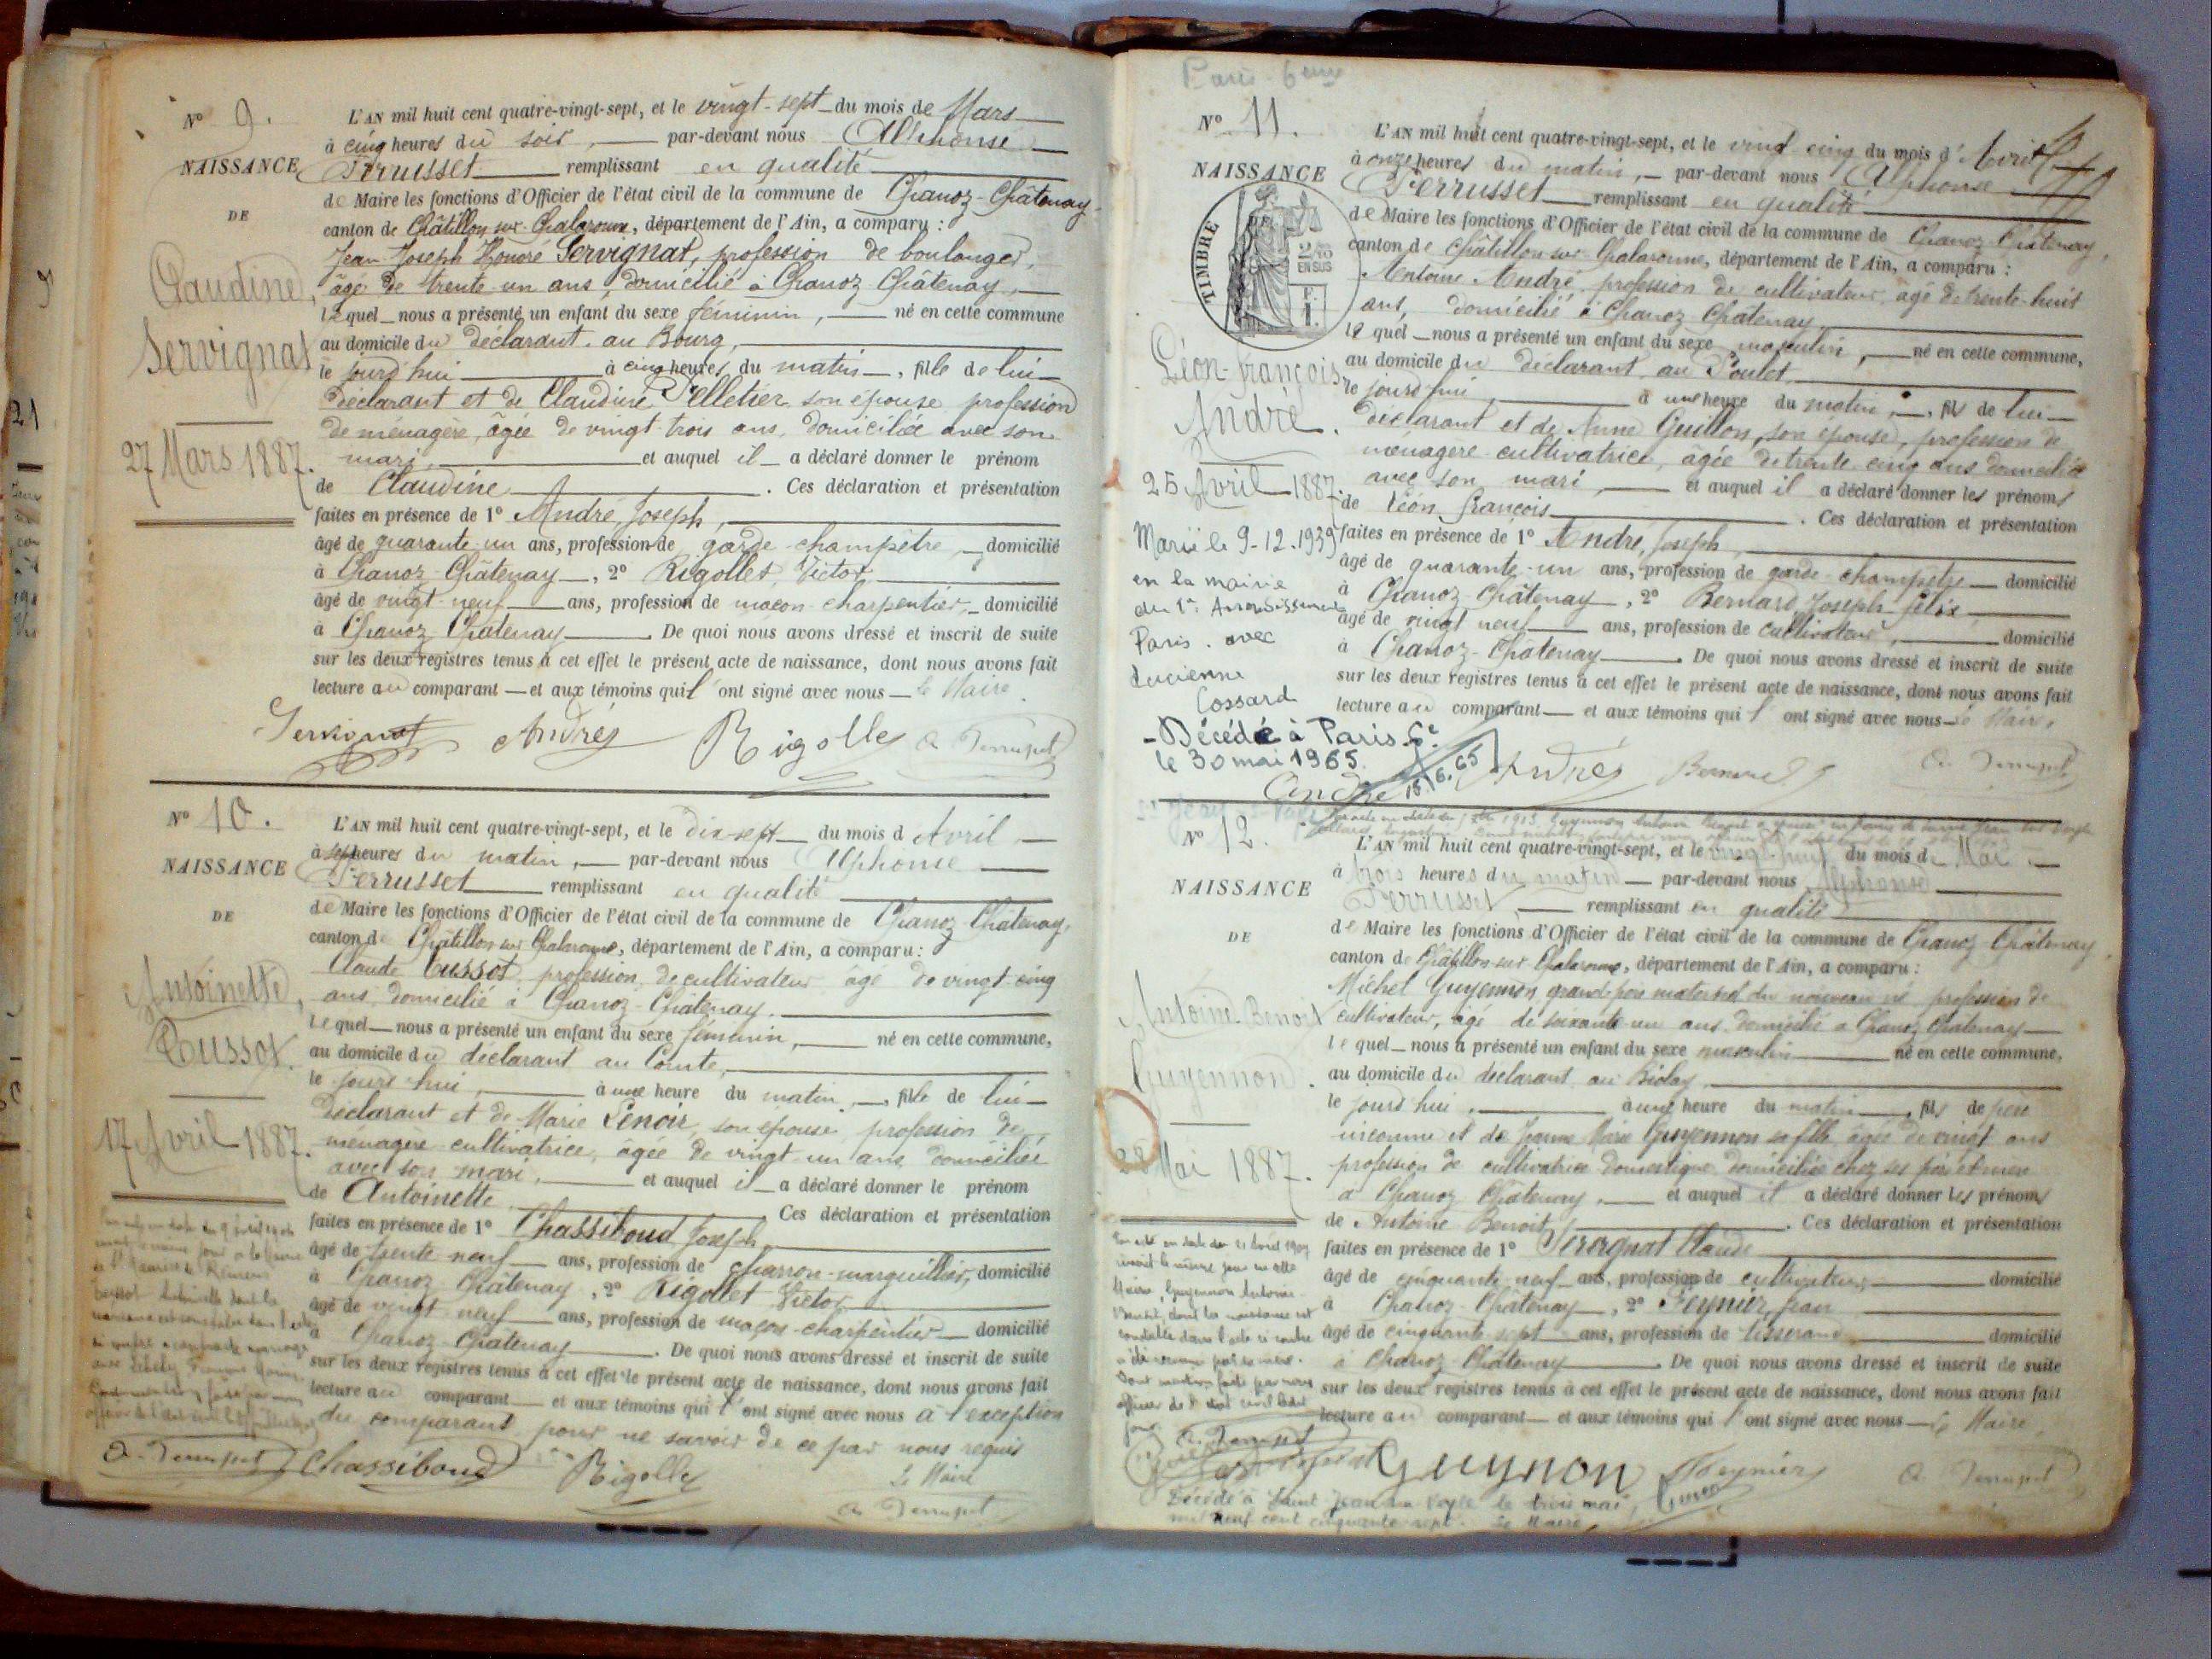 N° 9.
NAISSANCE
DE
Claudine,
Servignat
27 Mars 1887.
L'AN mil huit cent quatre-vingt-sept, et le vingt-sept du mois de Mars
à cinq heures du soir, par-devant nous Alphonse
Perrusset remplissant en qualité
de Maire les fonctions d'Officier de l'état civil de la commune de Chanoz-Châtenay,
canton de Châtillon sur Chalaronne, département de l'Ain, a comparu :
Jean Joseph Honoré Servignat, profession de boulanger,
âgé de trente-un ans, domicilié à Chanoz Châtenay,
lequel nous a présenté un enfant du sexe féminin, né en cette commune
au domicile du déclarant, au Bourg,
le jourd'hui à cinq heures du matin, fille de lui
déclarant et de Claudine Pelletier son épouse profession
de ménagère, âgée de vingt-trois ans, domiciliée avec son
mari, et auquel il a déclaré donner le prénom
de Claudine. Ces déclaration et présentation
faites en présence de 1° André, Joseph,
âgé de quarante-un ans, profession de garde-champêtre, domicilié
à Chanoz-Châtenay, 2° Rigollet, Victor,
âgé de vingt-neuf ans, profession de maçon-charpentier, domicilié
à Chanoz-Châtenay. De quoi nous avons dressé et inscrit de suite
sur les deux registres tenus à cet effet le présent acte de naissance, dont nous avons fait
lecture au comparant et aux témoins qui l'ont signé avec nous le Maire.
Servignat André Rigollet A. Perrusset
N° 10.
NAISSANCE
DE
Antoinette,
Cussot.
17 Avril 1887.
L'AN mil huit cent quatre-vingt-sept, et le dix-sept du mois d'Avril
à sept heures du matin, par-devant nous Alphonse
Perrusset remplissant en qualité
de Maire les fonctions d'Officier de l'état civil de la commune de Chanoz Châtenay,
canton de Châtillon sur Chalaronne, département de l'Ain, a comparu :
Claude Cussot, profession de cultivateur âgé de vingt-cinq
ans, domicilié à Chanoz-Châtenay.
lequel nous a présenté un enfant du sexe féminin, né en cette commune,
au domicile du déclarant au Comte,
le jourd'hui, à une heure du matin, fille de lui
déclarant et de Marie Lenoir, son épouse, profession de
ménagère-cultivatrice, âgée de vingt-un ans, domiciliée
avec son mari, et auquel il a déclaré donner le prénom
de Antoinette Ces déclaration et présentation
faites en présence de 1° Chassiboud Joseph
âgé de trente-neuf ans, profession de charron-marguillier, domicilié
à Chanoz-Châtenay, 2° Rigollet Victor
âgé de vingt-neuf ans, profession de maçon-charpentier domicilié
à Chanoz-Châtenay. De quoi nous avons dressé et inscrit de suite
sur les deux registres tenus à cet effet le présent acte de naissance, dont nous avons fait
lecture au comparant et aux témoins qui l'ont signé avec nous à l'exception
du comparant pour ne savoir de ce par nous requis
Le Maire
A. Perrusset Chassiboud Rigollet
A. Perrusset
Paris 6eme
N° 11.
NAISSANCE
DE
TIMBRE
2/10
EN SUS
F.
1.
Léon-François,
André.
25 Avril 1887.
Marié le 9-12-1939
en la mairie
du 1er Arrondissement
Paris. avec
Lucienne
Cossard
- Décédé à Paris 6e
le 30 mai 1965.
15.6.65
L'AN mil huit cent quatre-vingt-sept, et le vingt-cinq du mois d'Avril
à onze heures du matin, par-devant nous Alphonse
Perrusset remplissant en qualité
de Maire les fonctions d'Officier de l'état civil de la commune de Chanoz Châtenay,
canton de Châtillon sur Chalaronne, département de l'Ain, a comparu :
Antoine André, profession de cultivateur, âgé de trente-huit
ans, domicilié à Chanoz Châtenay
lequel nous a présenté un enfant du sexe masculin, né en cette commune,
au domicile du déclarant, au Poulet,
le jourd'hui, à une heure du matin, fils de lui
déclarant et de Anne Guillon, son épouse, profession de
ménagère-cultivatrice, âgée de trente-cinq ans domiciliée
avec son mari, et auquel il a déclaré donner les prénoms
de Léon François. Ces déclaration et présentation
faites en présence de 1° André, Joseph,
âgé de quarante-un ans, profession de garde-champêtre domicilié
à Chanoz-Châtenay, 2° Bernard Joseph Félix,
âgé de vingt neuf ans, profession de cultivateur, domicilié
à Chanoz-Châtenay. De quoi nous avons dressé et inscrit de suite
sur les deux registres tenus à cet effet le présent acte de naissance, dont nous avons fait
lecture au comparant et aux témoins qui l'ont signé avec nous le Maire,
André André Bernard A. Perrusset
N° 12.
NAISSANCE
DE
Antoine Benoit
Guyennon.
28 Mai 1887.
L'AN mil huit cent quatre-vingt-sept, et le vingt-huit du mois de Mai
à trois heures du matin par-devant nous Alphonse
Perrusset, remplissant en qualité
de Maire les fonctions d'Officier de l'état civil de la commune de Chanoz Châtenay
canton de Châtillon sur Chalaronne, département de l'Ain, a comparu :
Michel Guyennon grand-père maternel du nouveau né profession de
cultivateur, âgé de soixante-un ans domicilié à Chanoz Châtenay
lequel nous a présenté un enfant du sexe masculin né en cette commune,
au domicile du déclarant au Biolay,
le jourd'hui, à une heure du matin, fils de père
inconnu et de Jeanne Marie Guyennon sa fille âgée de vingt ans
profession de cultivatrice domestique domiciliée chez ses père et mère
à Chanoz Châtenay, et auquel il a déclaré donner les prénoms
de Antoine Benoit. Ces déclaration et présentation
faites en présence de 1° Servignat Claude
âgé de cinquante-neuf ans, profession de cultivateur, domicilié
à Chanoz-Châtenay, 2° Peynier, Jean
âgé de cinquante-sept ans, profession de tisserand domicilié
à Chanoz-Châtenay. De quoi nous avons dressé et inscrit de suite
sur les deux registres tenus à cet effet le présent acte de naissance, dont nous avons fait
lecture au comparant et aux témoins qui l'ont signé avec nous le Maire,
A. Perrusset
Servignat Guynon Peynier A. Perrusset
Décédé à Saint Jean sur Veyle le trois mai
mil neuf cent cinquante sept. Le Maire,